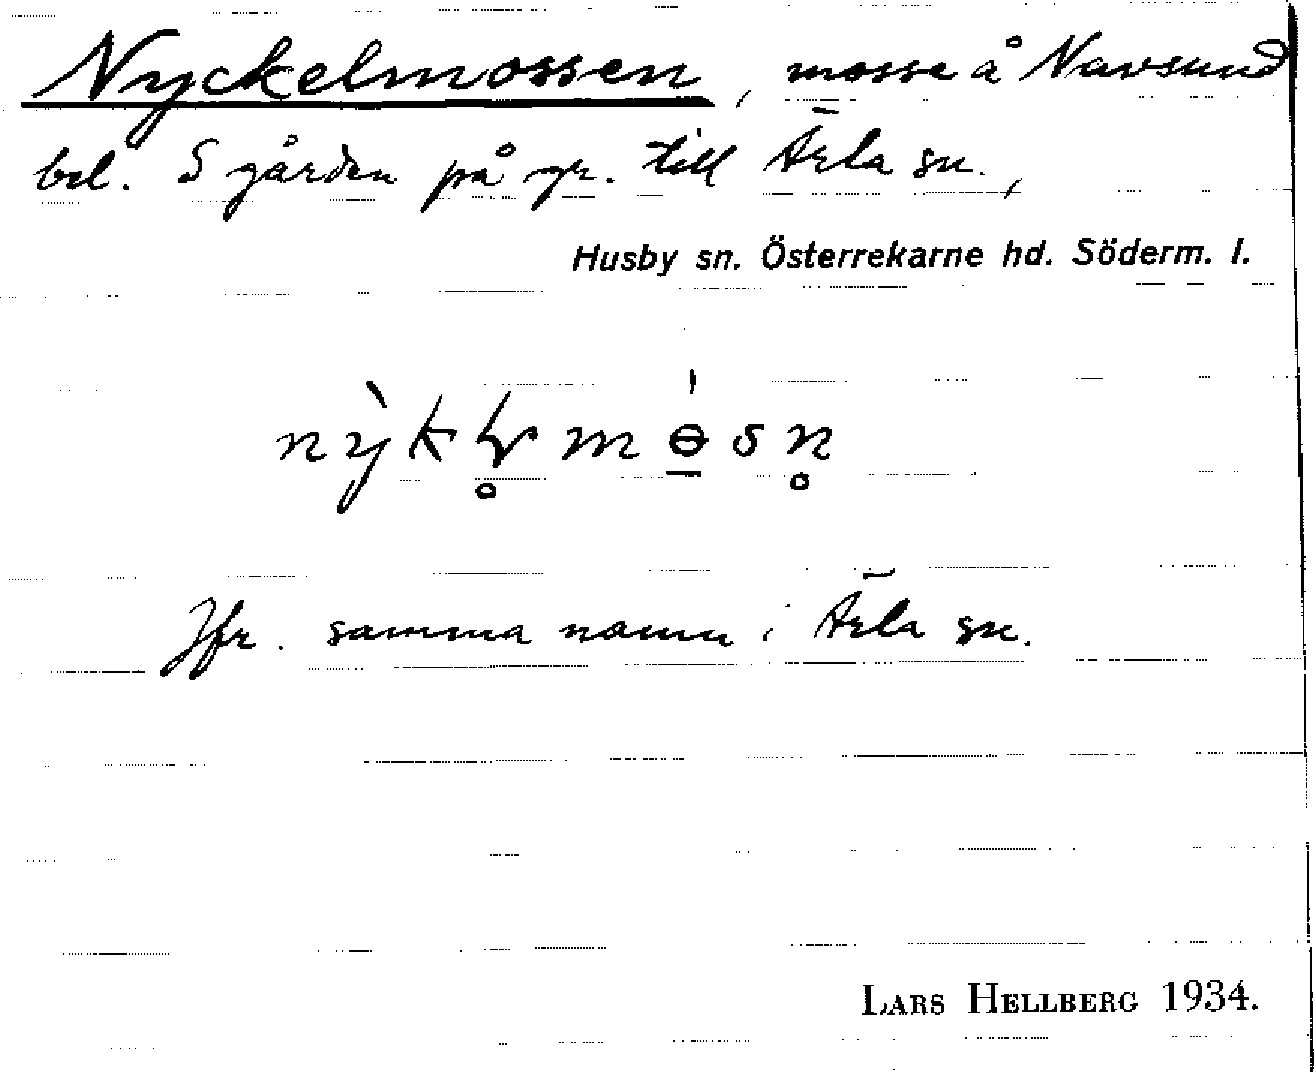 Nyckelmossen, mosse å Navsund
bel. S gården på gr. till Ärla sn.,
Husby sn. Österrekarne hd. Söderm. l.
Jfr. samma namn i Ärla sn.
LARS HELLBERG 1934.